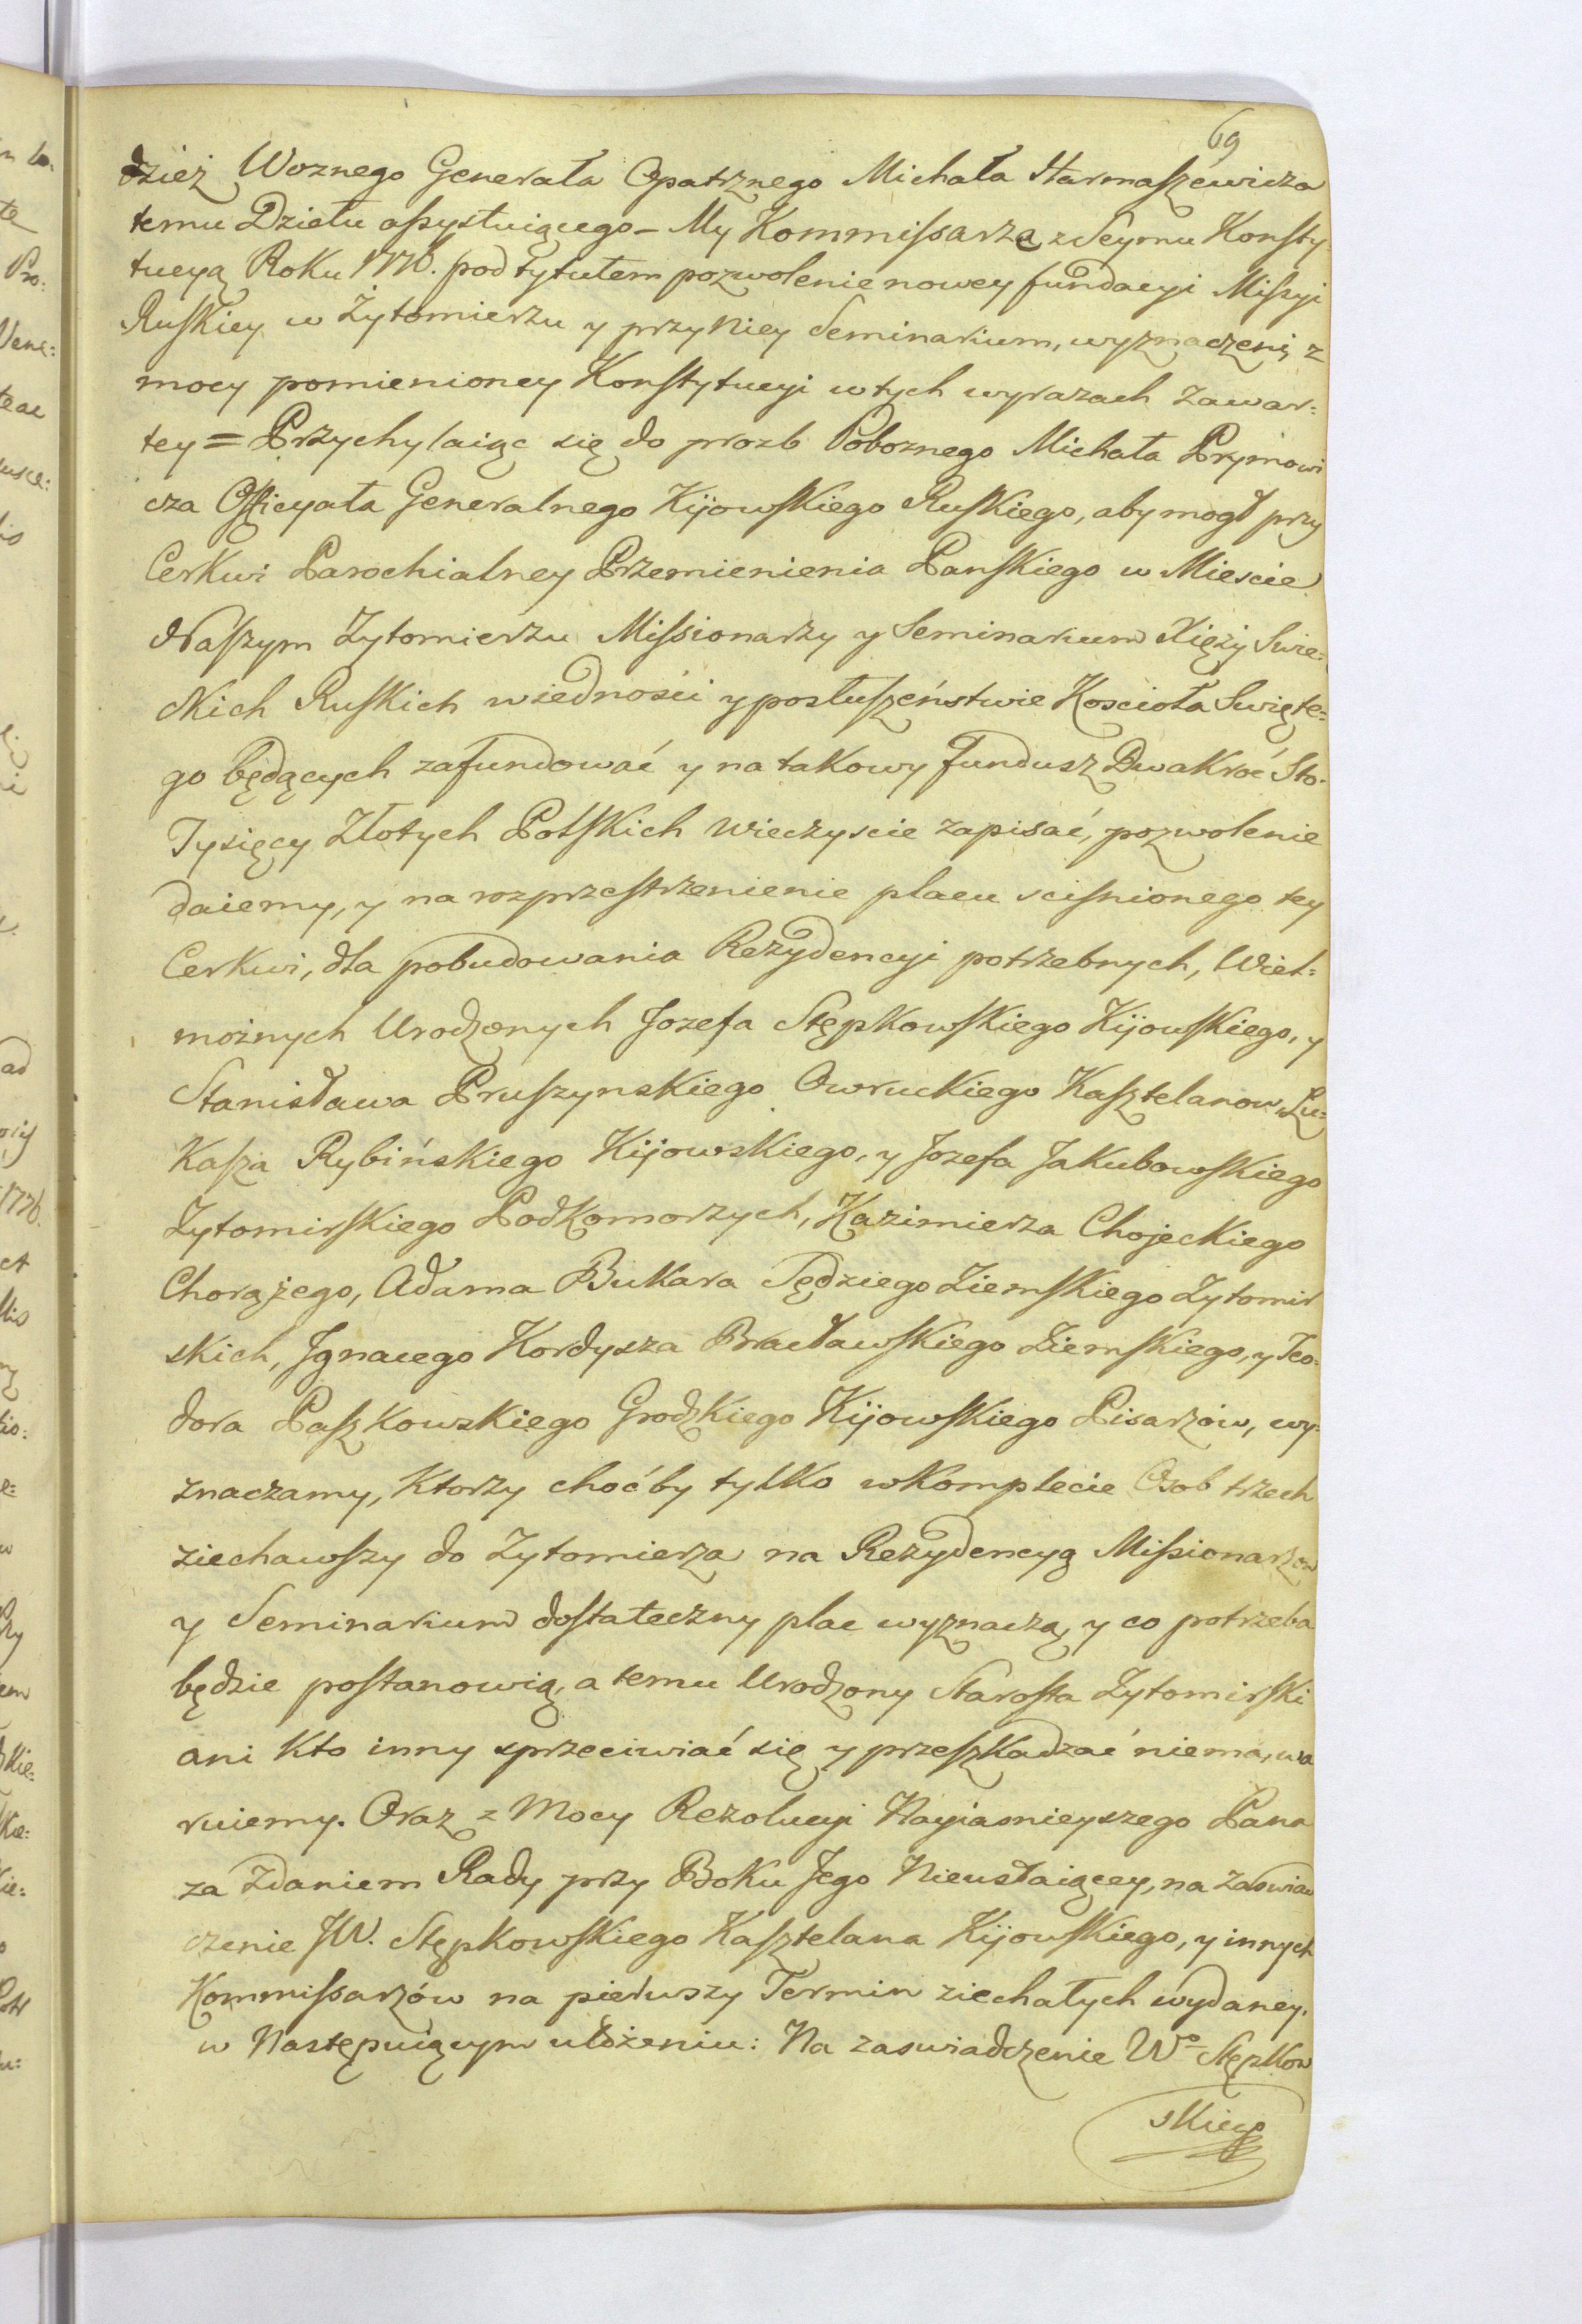 69
dzież Woznego Generała Opatrznego Michała Harmaszewicza
temu Dziełu assystuiącego – My Kommissarze z Seymu Konsty-
tucyą Roku 1776. pod tytułem pozwolenie nowey fundacyi Missyi
Ruskiey w Żytomierzu y przy niey Seminarium, wyznaczeni, z
mocy pomienioney Konstytucyi w tych wyrazach zawar:
tey = Przychylaiąc się do prozb Poboznego Michała Prymowi
cza Officyała Generalnego Kijowskiego Ruskiego, aby mogł przy
Cerkwi Parochialney Przemienienia Panskiego w Miescie
Naszym Zytomierzu Missionarzy y Seminarium Xięży Swie:
ckich Ruskich w iedności y posłuszeństwie Kościoła Swięte:
go będących zafundować y na takowy fundusz Dwakroć Sto-
Tysięcy Złotych Polskich wieczyscie zapisać, pozwolenie
daiemy, y na rozprzestrzenienie placu scisnionego tey
Cerkwi, dla pobudowania Rezydencyi potrzebnych, Wiel:
możnych Urodzonych Jozefa Stępkowskiego Kijowskiego, y
Stanisława Pruszynskiego Owruckiego Kasztelanow, Łu:
kasza Rybińskiego Kijowskiego, y Jozefa Jakubowskiego
Zytomirskiego Podkomorzych, Kazimierza Chojeckiego
Chorążego, Adama Bukara Sędziego Ziemskiego Zytomir
skich, Jgnacego Kordysza Bracławskiego Ziemskiego, y Teo-
dora Paszkowskiego Grodzkiego Kijowskiego Pisarzów, wy-
znaczamy, Ktorzy choćby tylko w komplecie Osob trzech
ziechawszy do Zytomierza na Rezydencyą Missionarzow
y Seminarium dostateczny plac wyznaczą, y co potrzeba
będzie postanowią, a temu Urodzony Starosta Zytomirski
ani kto inny sprzeciwiać się y przeszkadzać niema, wa
ruiemy. Oraz z Mocy Rezolucyi Nayiasnieyszego Pana
za Zdaniem Rady przy Boku Jego Nieustaiącey, na zaswiad
czenie JW. Stępkowskiego Kasztelana Kijowskiego, y innych
Kommissarzów na pierwszy Termin ziechałych wydaney.
w Następuiącym ułożeniu: Na zaswiadczenie Wo Stępkow
skiego